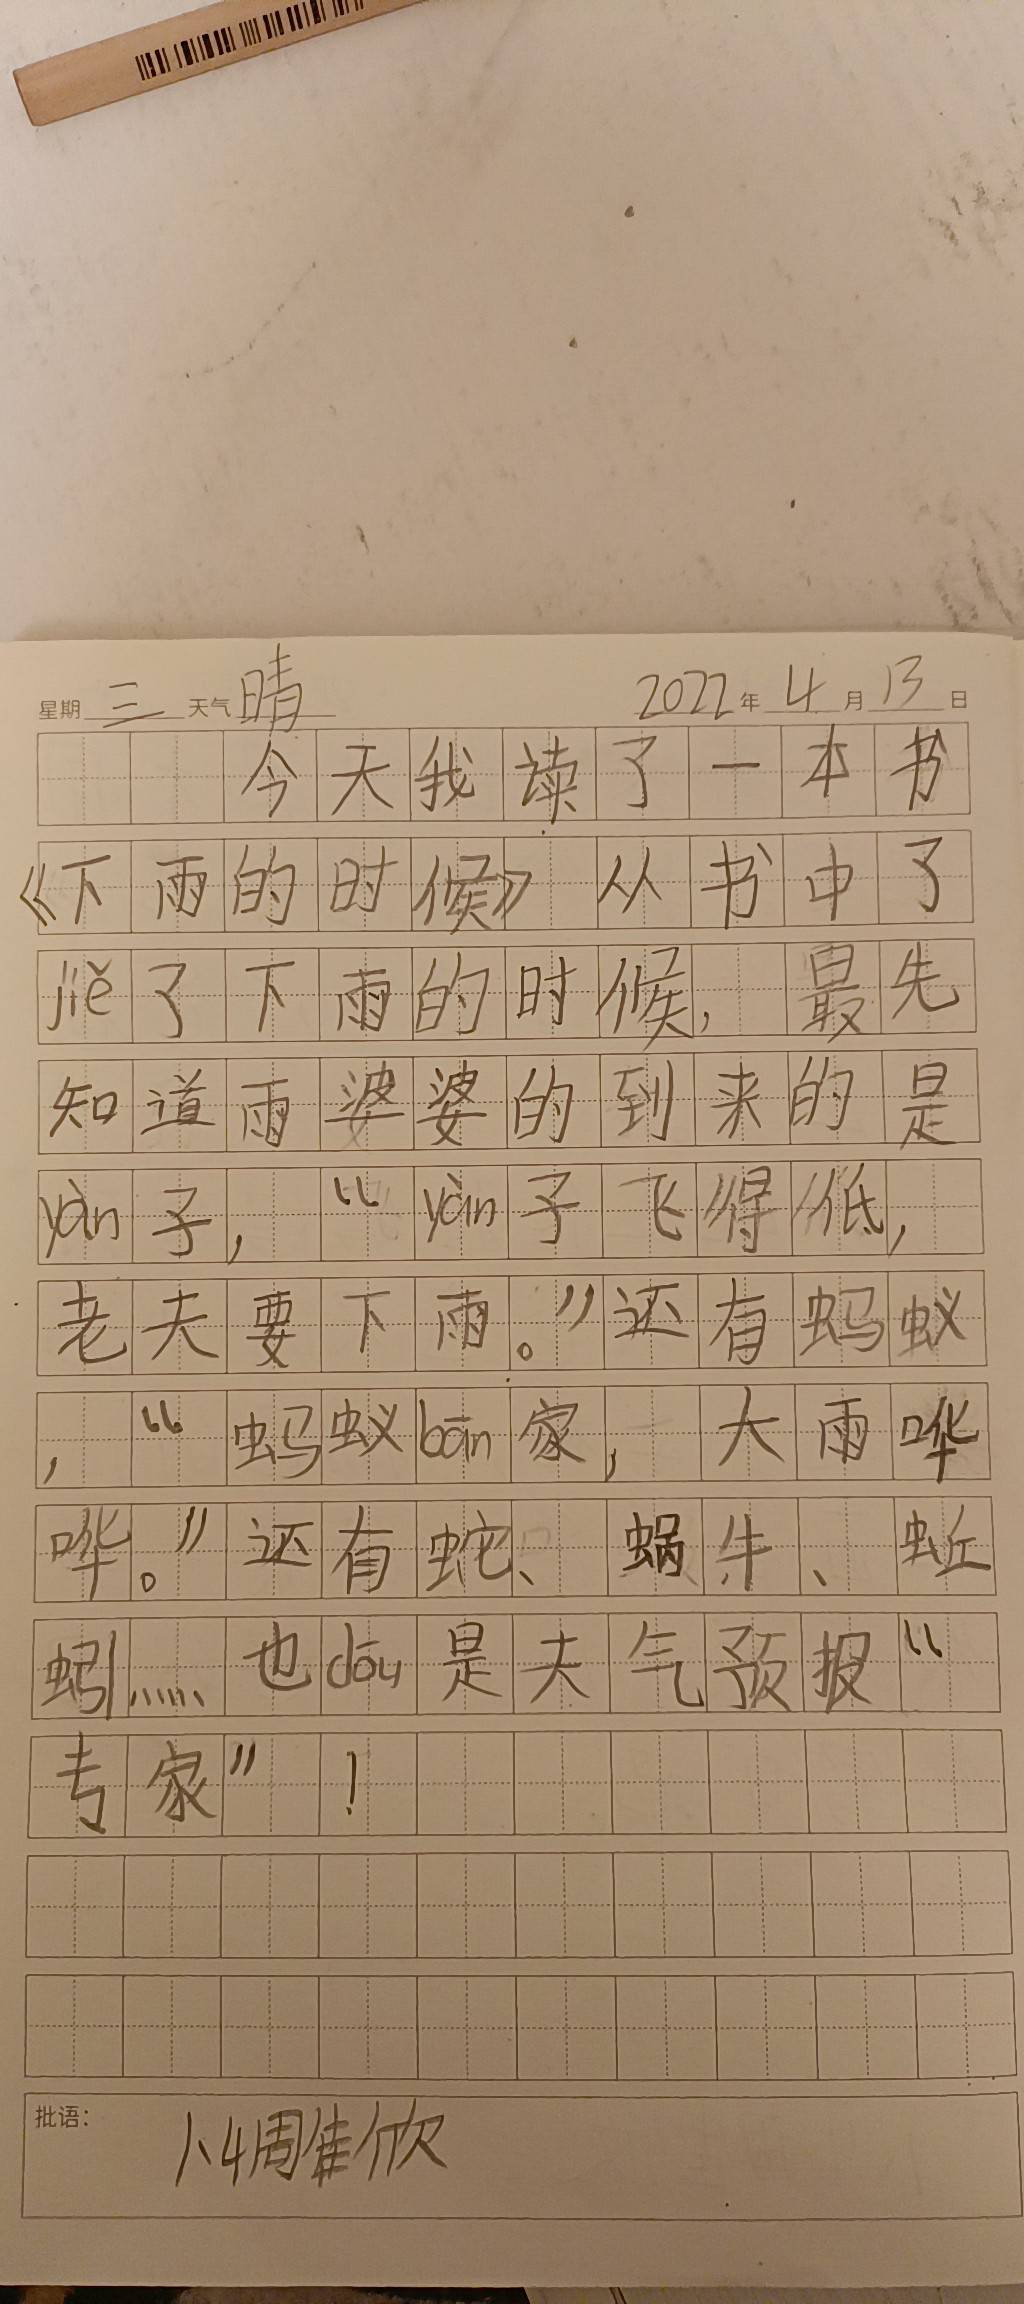 星期 三 天气 晴 2022 年 4 月 13 日
今天我读了一本书
《下雨的时候》 从书中了
jiě了下雨的时候, 最先
知道雨婆婆的到来的是
yàn子, “yàn子飞得低,
老夫要下雨。”还有蚂蚁
, “蚂蚁bān家, 大雨哗
哗。”还有蛇、蜗牛、蚯
蚓……也dōu是夫气预报“
专家”!
批语: